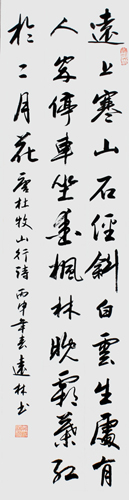 遠上寒山石徑斜白雲生處有
人家停車坐愛楓林晚霜葉紅
於二月花 唐杜牧山行詩 丙申年春遠林書